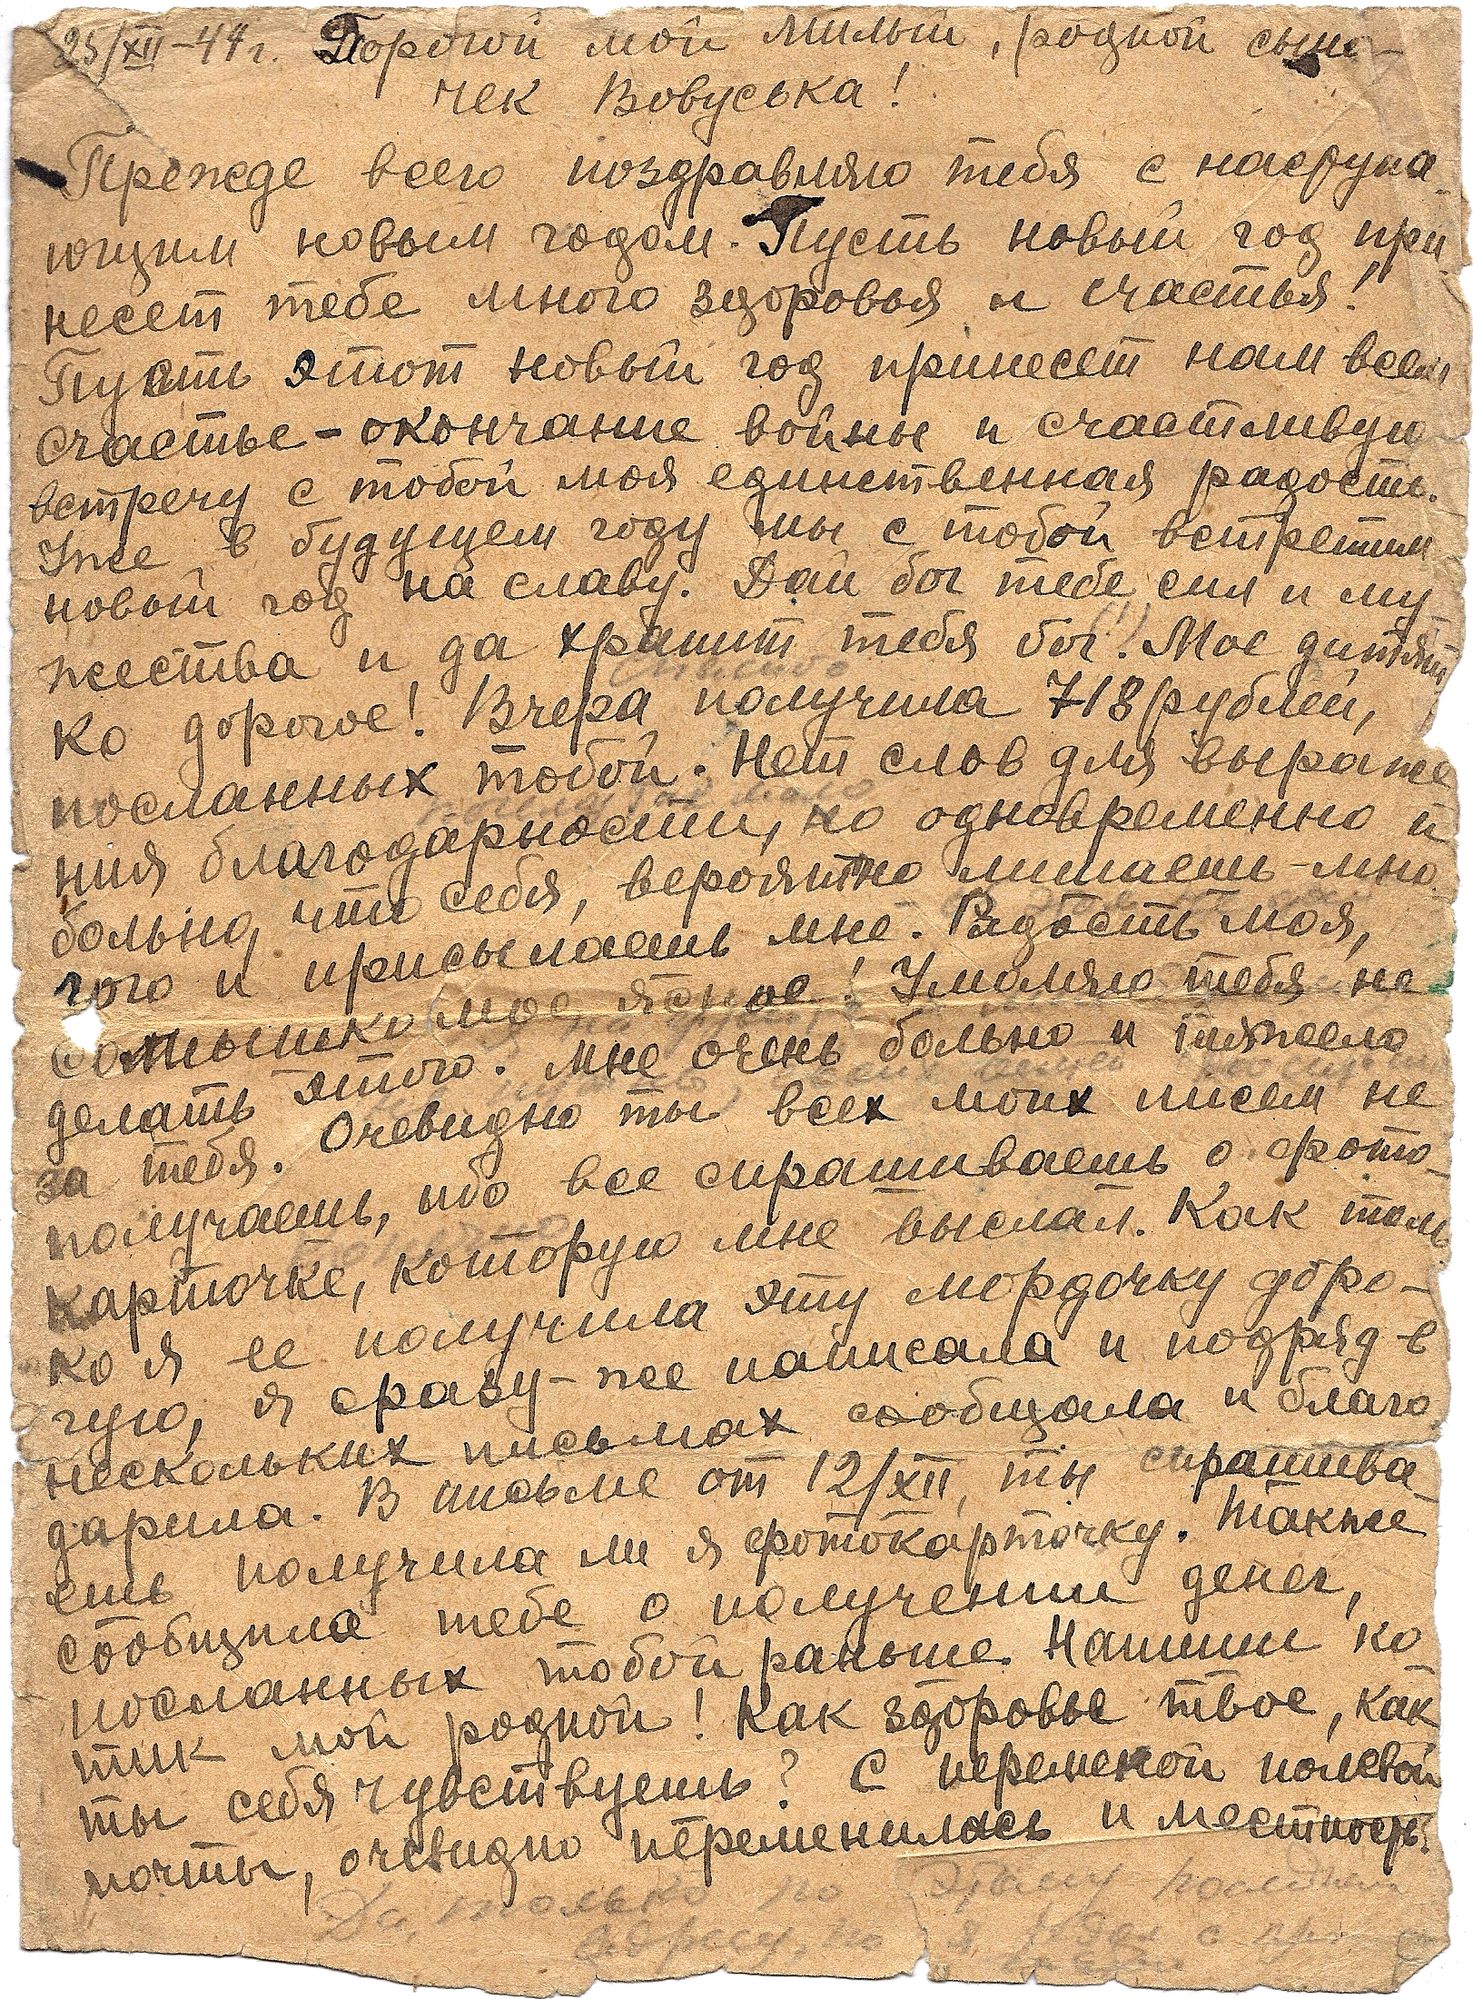 25/XII-44г. Дорогой мой милый, родной сыно-
чек Вовуська!
Прежде всего поздравляю тебя с наступа-
ющим новым годом. Пусть новый год при-
несет тебе много здоровья и счастья!
Пусть этот новый год принесет нам всем
счастье - окончание войны и счастливую
встречу с тобой моя единственная радость.
Уже в будущем году мы с тобой встретим
новый год на славу. Дай бог тебе сил и му-
жества и да хранит тебя бог (!)! Мое дитят-
спасибо
ко дорогое! Вчера получила 718 рублей,
посланных тобой. Нет слов для выраже
ния благодарности, но одновременно и
больно, что себя, вероятно лишаешь мно
гого и присылаешь мне. Радость моя,
солнышко мое ясное! Умоляю тебя не
делать этого. Мне очень больно и тяжело
за тебя. Очевидно ты всех моих писем не
получаешь, ибо все спрашиваешь о фото-
карточке, которую мне выслал. Как толь
ко я ее получила эту мордочку доро-
гую, я сразу-же написала и подряд в
нескольких письмах сообщала и благо
дарила. В письме от 12/XII, ты спрашива-
ешь получила ли я фотокарточку. Также
сообщила тебе о получении денег,
посланных тобой раньше. Напиши ко
тик мой родной! Как здоровье твое, как
ты себя чувствуешь? С переменой полевой
почты, очевидно переменилась и местность.
Да, только по этому
адресу, но я с